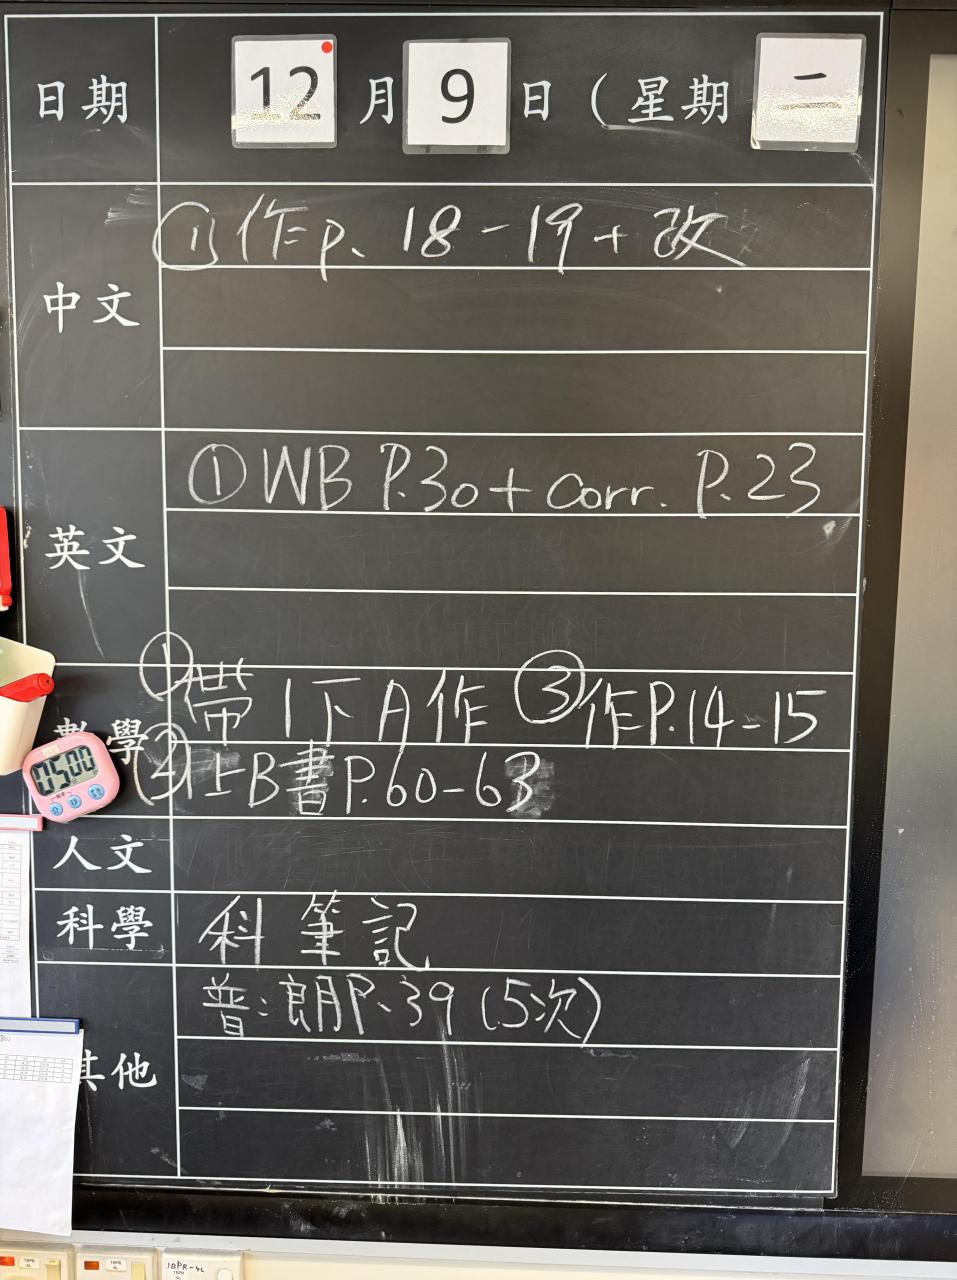 日期 12 月 9 日 (星期 二
中文 ① 作p. 18-19+改
英文 ① WB P.30+corr. P.23
① 帶1下A作 ③ 作P.14-15
數學 ② 上B書P.60-63
0500
人文
科學 科筆記
普:朗P.39 (5次)
其他
1BPR-4L